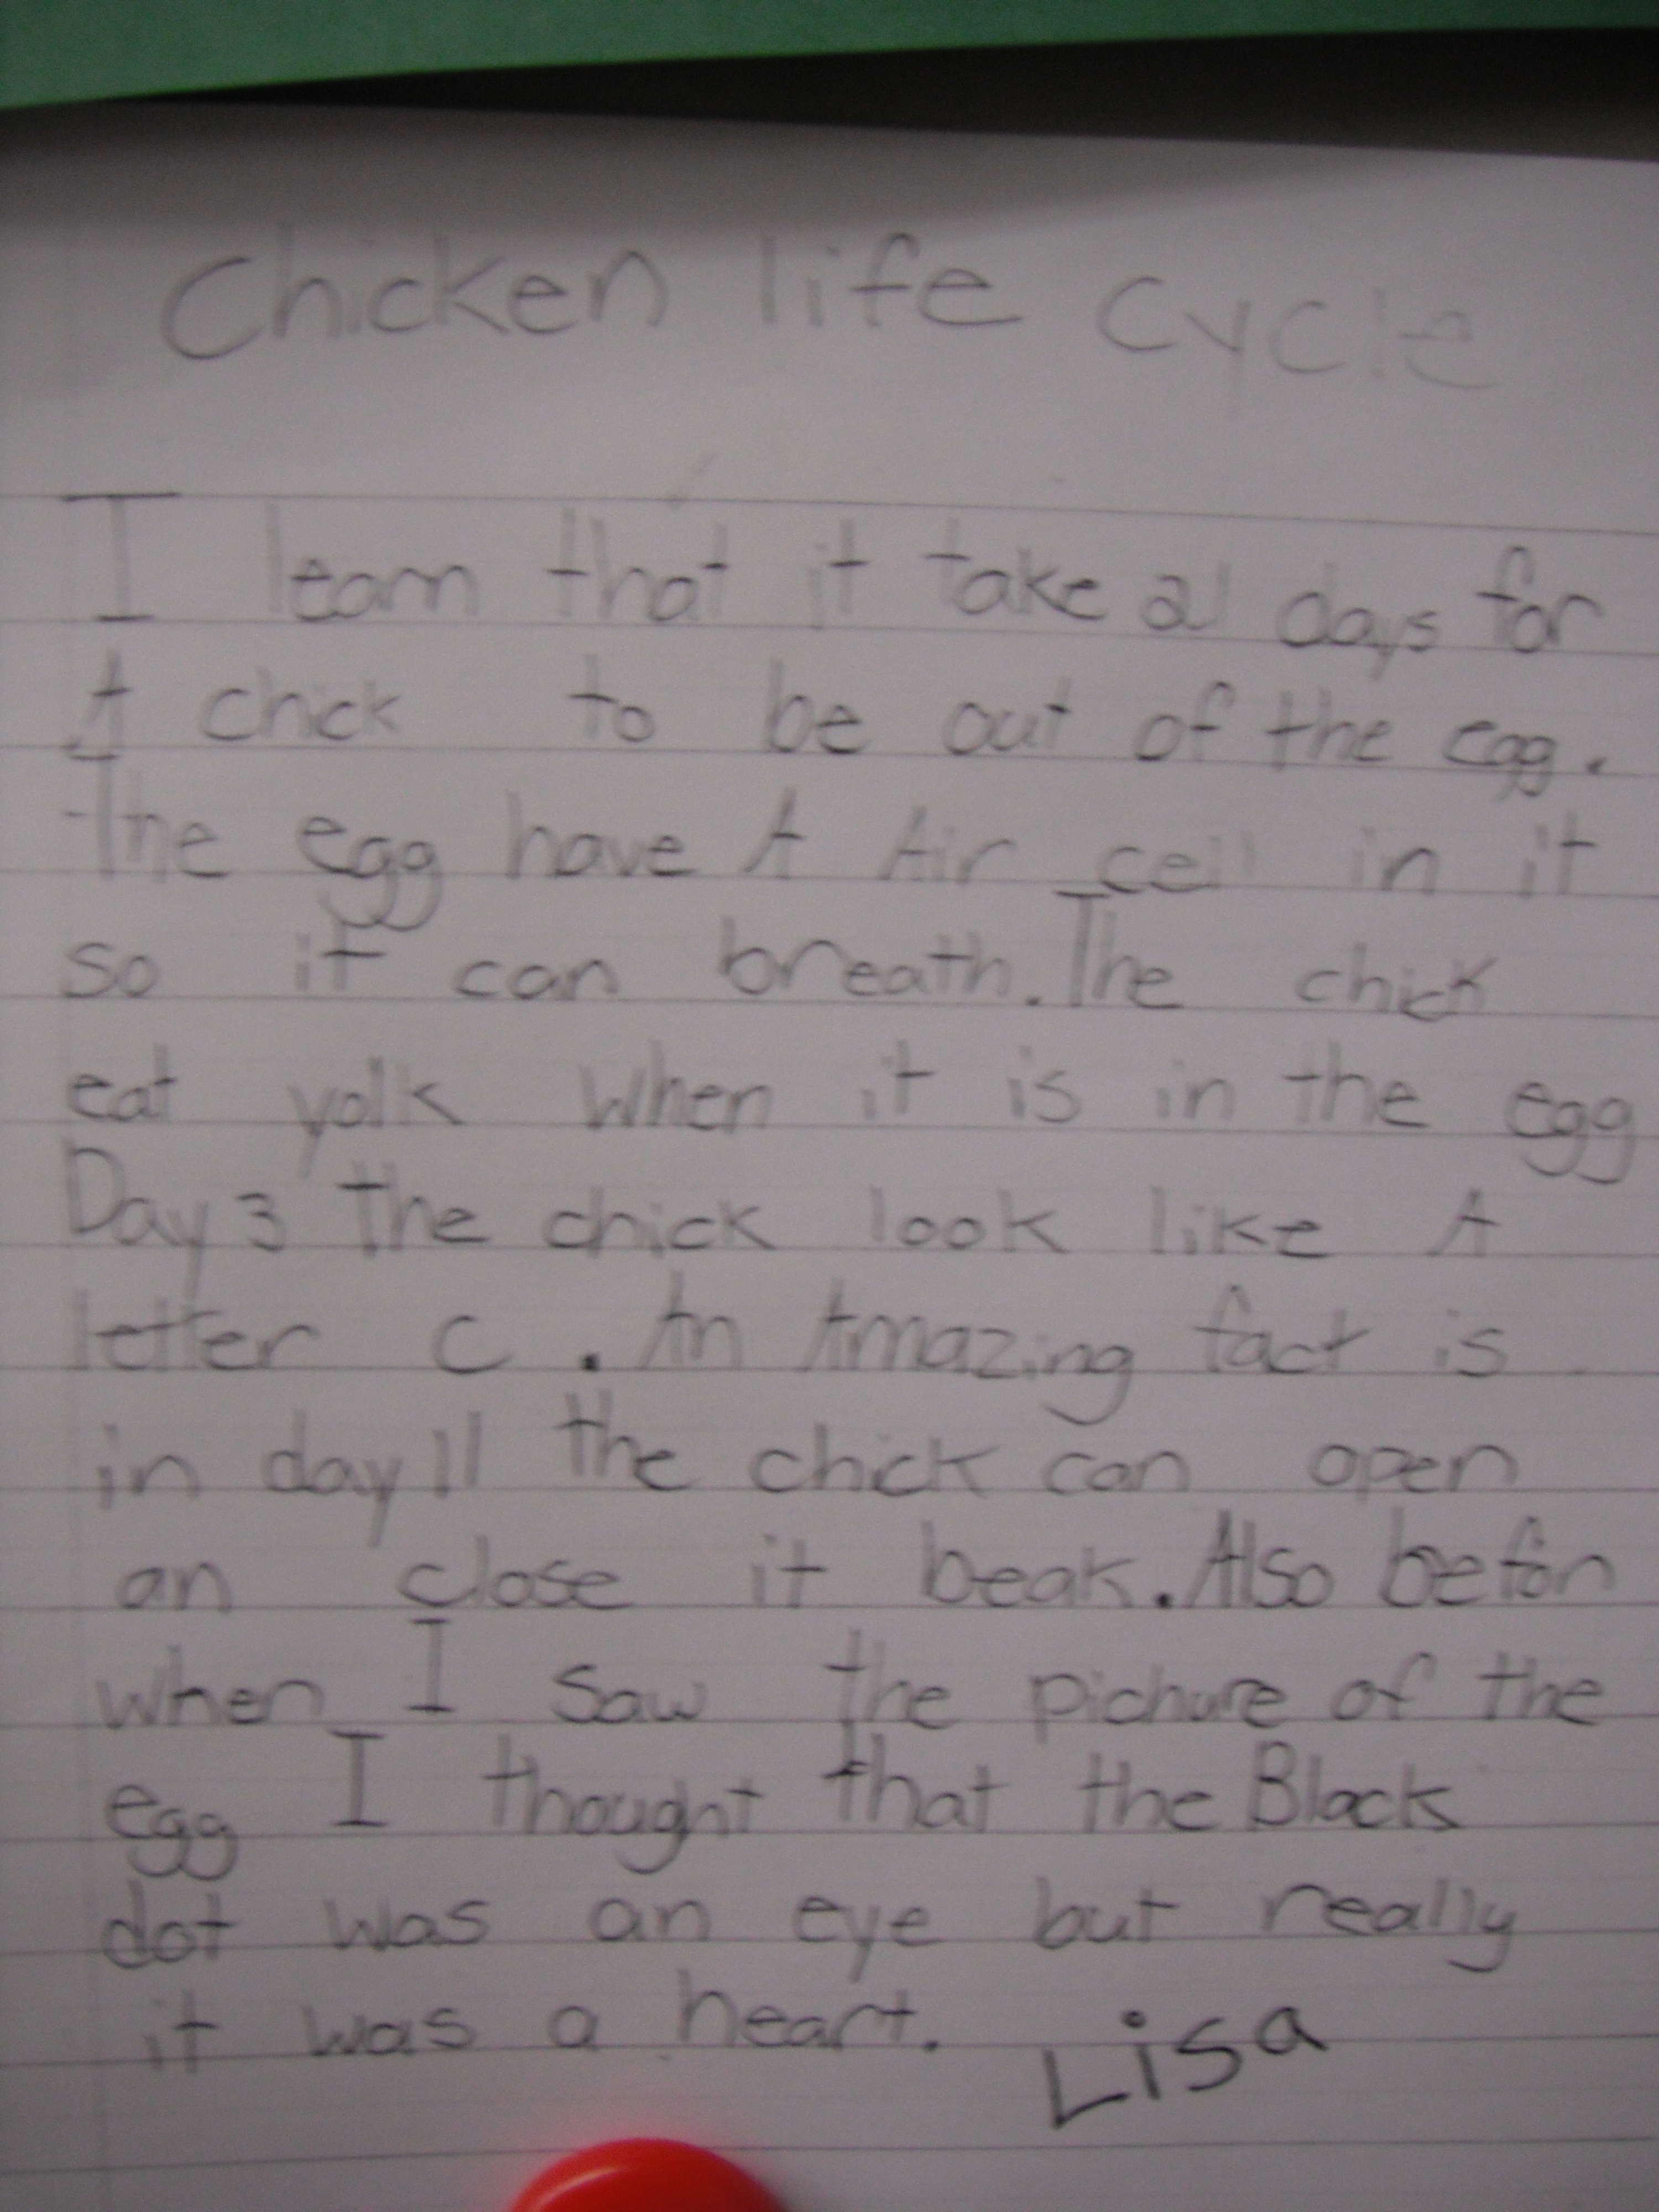 Chicken life cycle
I learn that it take 21 days for
A chick to be out of the egg.
The egg have A Air cell in it
so it can breath. The chick
eat yolk when it is in the egg
Day 3 the chick look like A
letter c. An Amazing fact is
in day 11 the chick can open
an close it beak. Also
when I saw the picture of the
egg I thought that the Black
dot was an eye but really
it was a heart. Lisa